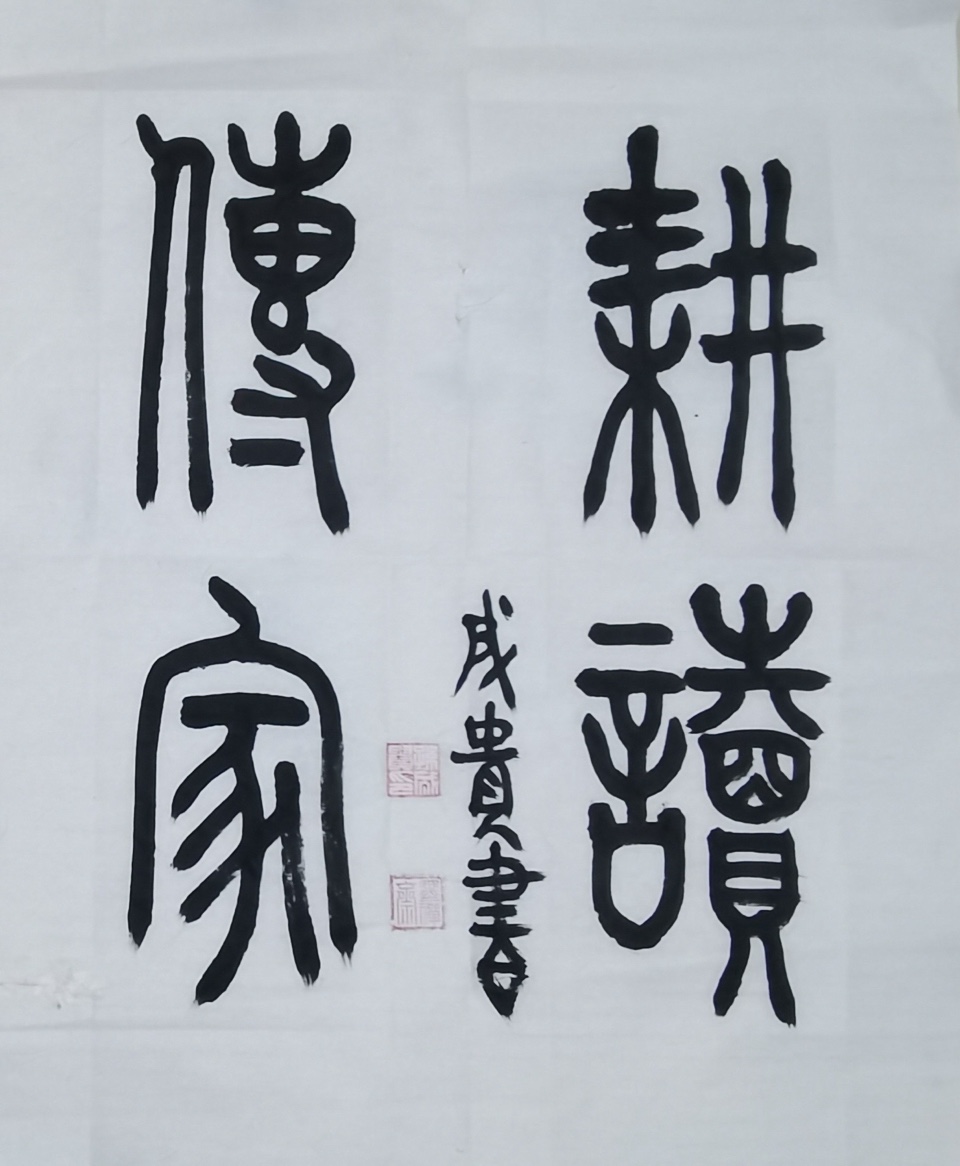 耕讀
傳家
成貴書